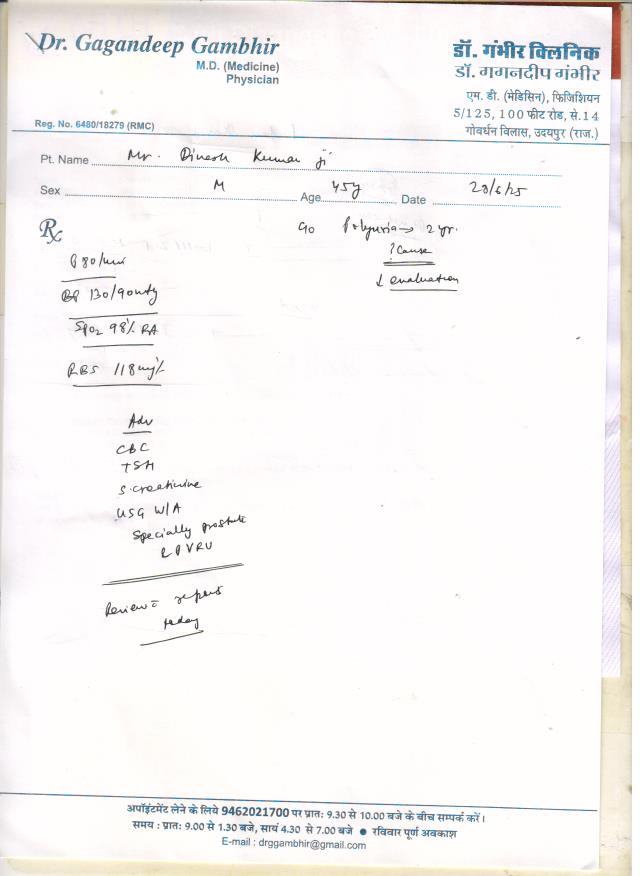 Dr. Gagandeep Gambhir
M.D. (Medicine)
Physician
Reg. No. 6480/18279 (RMC)
डॉ. गंभीर क्लिनिक
डॉ. गगनदीप गंभीर
एम. डी. (मेडिसिन), फिजिशियन
5/125, 100 फीट रोड, से.14
गोवर्धन विलास, उदयपुर (राज.)
Pt. Name Mr. Dinesh Kumar ji
Sex M Age 45y Date 28/6/25
Rx
C/o Polyuria → 2 yr.
? Cause
↓ evaluation
P 80/min
BP 130/90
SPO2 98% RA
RBS 118 mg%
Adv
CBC
TSH
S. creatinine
USG W/A
Specially prostate
& PVRU
Review c̄ reports
today
अपॉइंटमेंट लेने के लिये 9462021700 पर प्रातः 9.30 से 10.00 बजे के बीच सम्पर्क करें।
समय : प्रातः 9.00 से 1.30 बजे, सायं 4.30 से 7.00 बजे ● रविवार पूर्ण अवकाश
E-mail : drggambhir@gmail.com